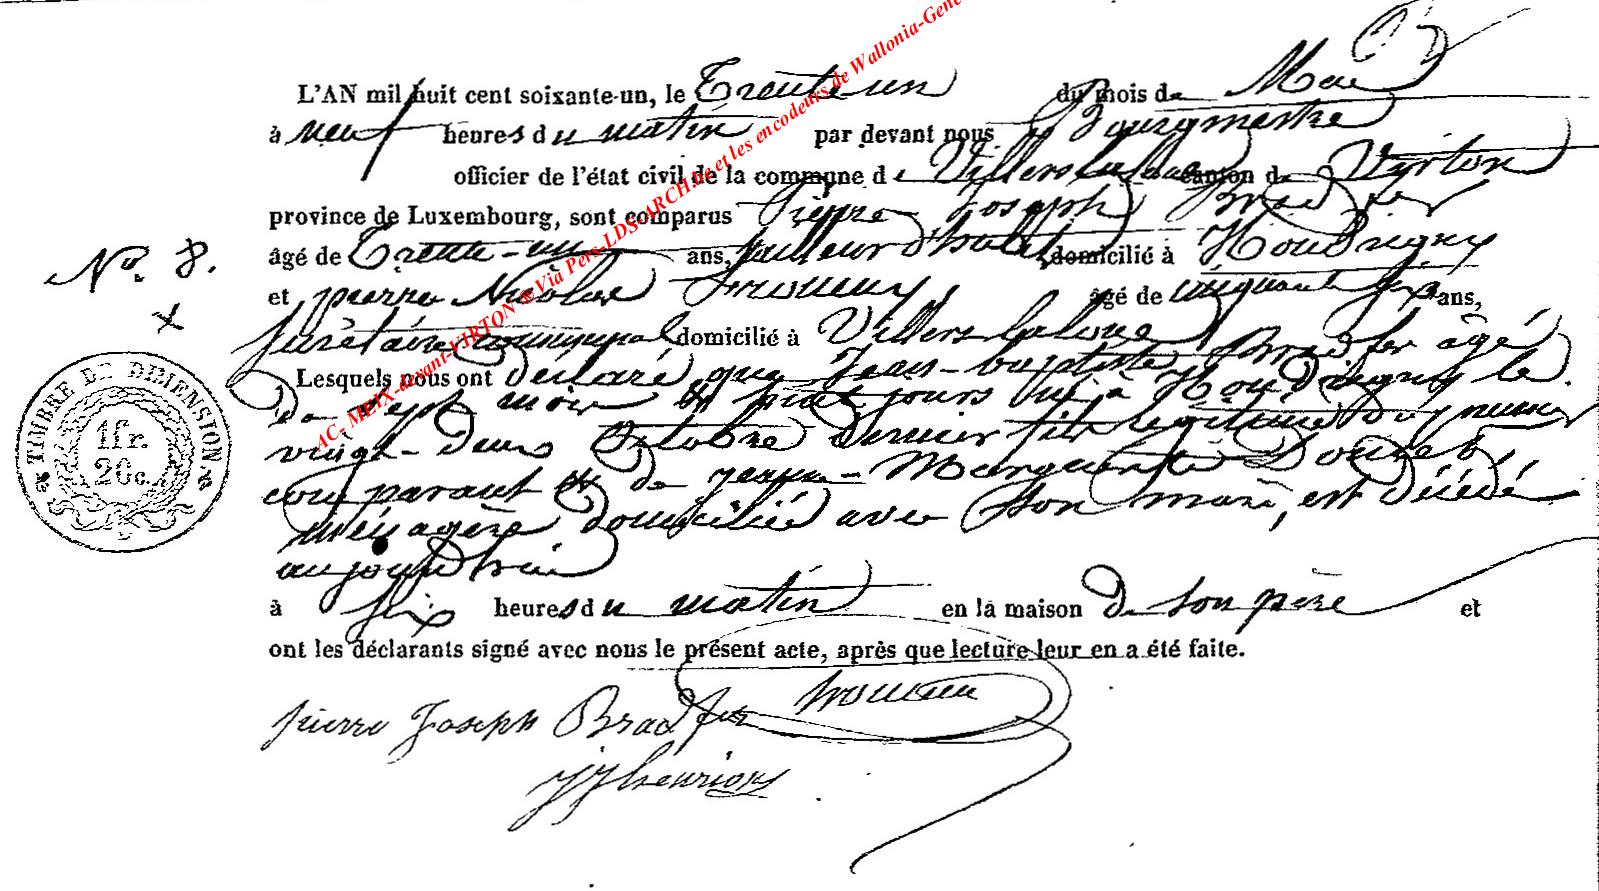 L'AN mil huit cent soixante-un, le Trente-un du mois de Mai
à neuf heures du matin par devant nous Bourgmestre
officier de l'état civil de la commune de Villers la loue canton de Virton
province de Luxembourg, sont comparus Pierre Joseph Bradfer
N° 8. âgé de Trente-un ans, tailleur d'habits domicilié à Houdrigny
et pierre Nicolas âgé de cinquante six ans,
secrétaire communal domicilié à Villers la loue
Lesquels nous ont déclaré que Jean-baptiste Bradfer âgé
de sept mois jours né à Houdrigny le
vingt-deux Octobre dernier fils légitime du premier
comparant et de Jeanne-Marguerite
ménagère domiciliée avec son mari, est décédé
aujourd'hui
à six heures du matin en la maison de son père et
ont les déclarants signé avec nous le présent acte, après que lecture leur en a été faite.
pierre Joseph Bradfer
TIMBRE DE DIMENSION
1fr.
20c.
AC- MEIX-devant-VIRTON @ Via Pers-LDS-ARCH.be et les encodeurs de Wallonia-Gene